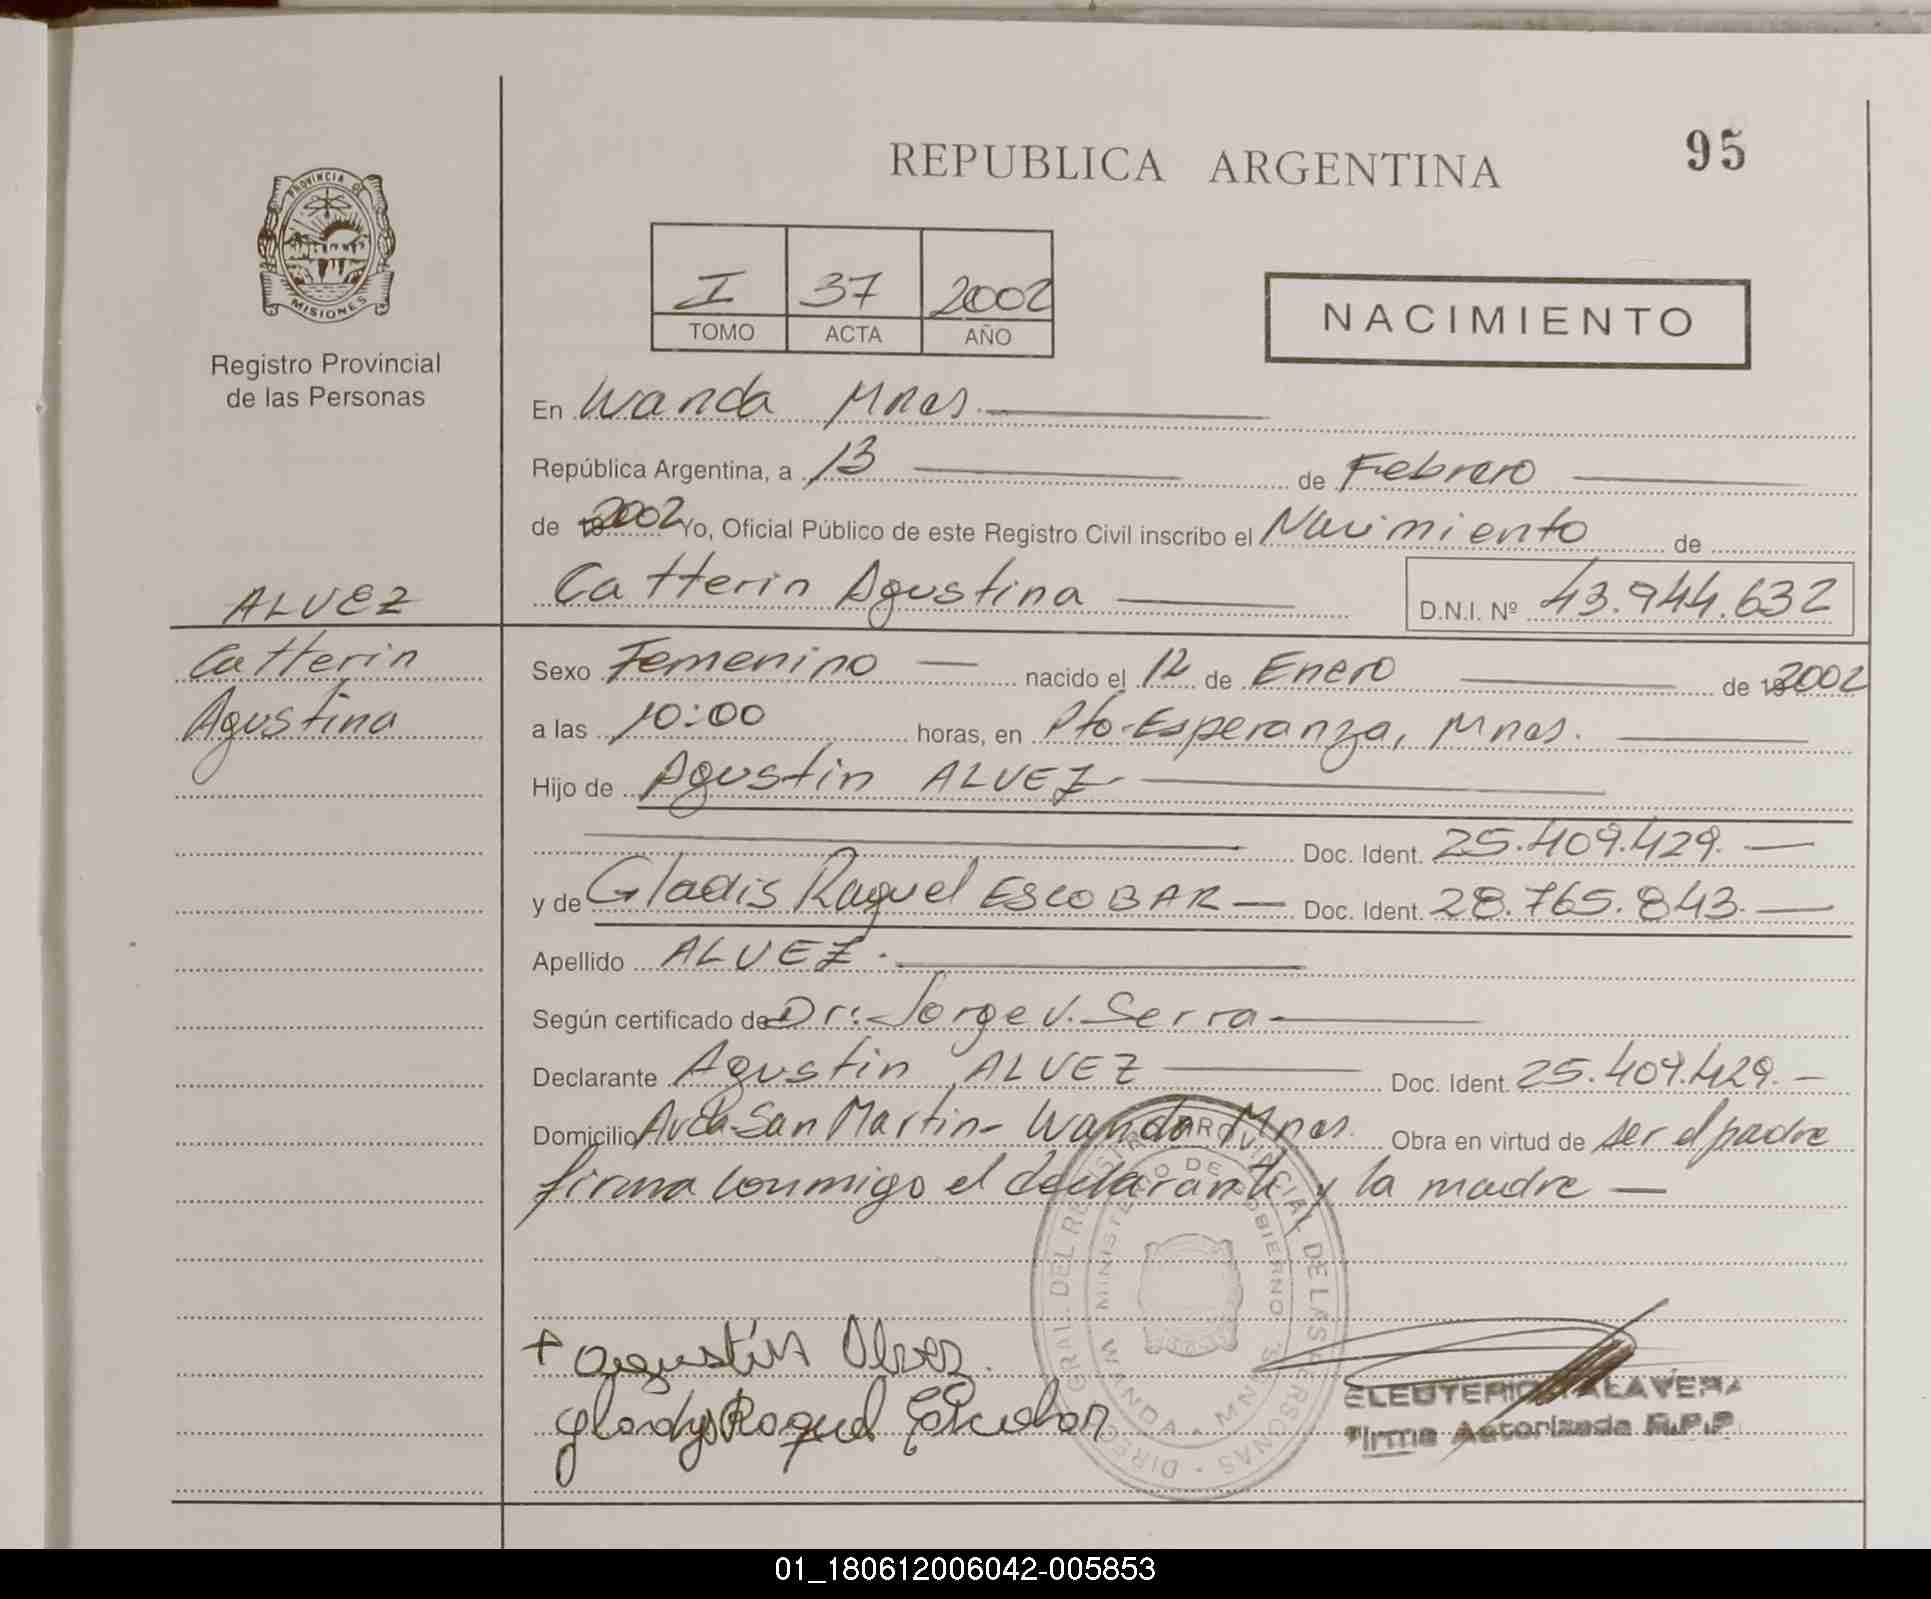 REPUBLICA ARGENTINA
95
PROVINCIA DE
MISIONES
Registro Provincial
de las Personas
I 37 2002
TOMO ACTA AÑO
NACIMIENTO
En Wanda Mnes.
República Argentina, a 13 de Febrero
de 19 2002 Yo, Oficial Público de este Registro Civil inscribo el Nacimiento de
Catterin Agustina D.N.I. Nº 43.944.632
ALVEZ
Catterin
Agustina
Sexo Femenino nacido el 12 de Enero de 19 2002
a las 10:00 horas, en Pto-Esperanza, Mnes.
Hijo de Agustin ALVEZ
Doc. Ident. 25.409.429.
y de Gladis Raquel ESCOBAR Doc. Ident. 28.765.843.
Apellido ALVEZ.
Según certificado de Dr: Jorge V. Serra
Declarante Agustin ALVEZ Doc. Ident. 25.409.429.
Domicilio Avda-San Martin- Wanda Mnes. Obra en virtud de ser el padre
firma conmigo el declarante y la madre
DIREC. GRAL. DEL REGISTRO PROVINCIAL DE LAS PERSONAS
MINISTERIO DE GOBIERNO
WANDA - MNES.
+ Agustín Alvez.
Gladys Raquel Escobar
ELEUTERIO TALAVERA
Firma Autorizada R.P.P.
01_180612006042-005853